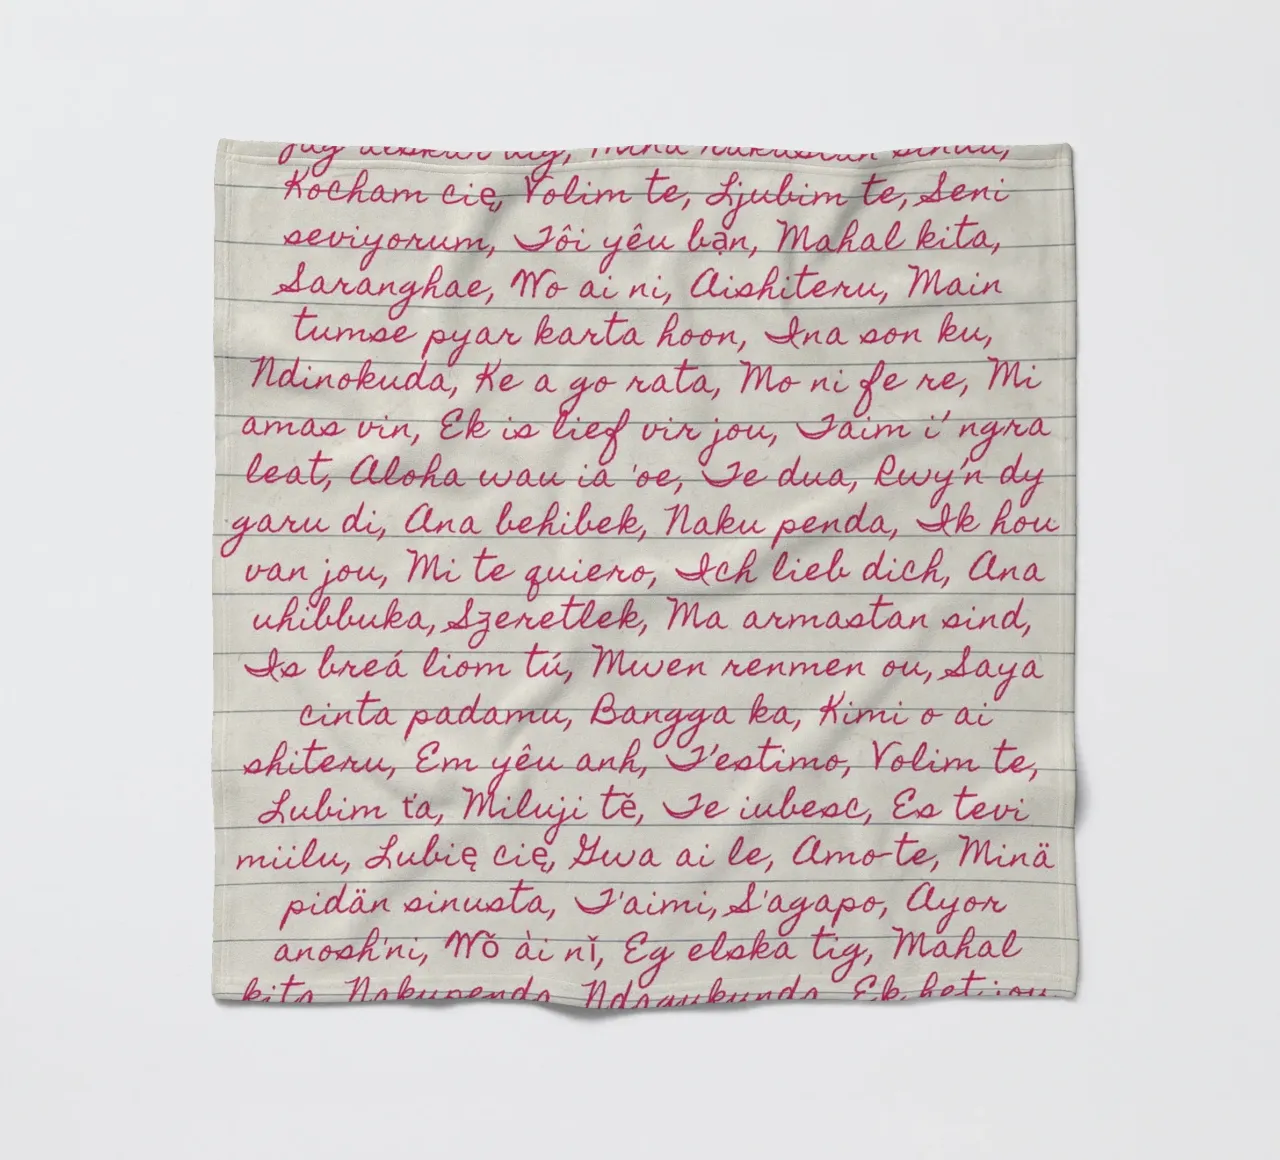 Kocham cię, Volim te, Ljubim te, Seni
seviyorum, Tôi yêu bạn, Mahal kita,
Saranghae, Wo ai ni, Aishiteru, Main
tumse pyar karta hoon, Ina son ku,
Ndinokuda, Ke a go rata, Mo ni fe re, Mi
amas vin, Ek is lief vir jou, Taim i' ngra
leat, Aloha wau ia 'oe, Te dua, Rwy'n dy
garu di, Ana behibek, Naku penda, Ik hou
van jou, Mi te quiero, Ich lieb dich, Ana
uhibbuka, Szeretlek, Ma armastan sind,
Is breá liom tú, Mwen renmen ou, Saya
cinta padamu, Bangga ka, Kimi o ai
shiteru, Em yêu anh, T'estimo, Volim te,
Lubim ťa, Miluji tě, Te iubesc, Es tevi
miilu, Lubię cię, Gwa ai le, Amo-te, Minä
pidän sinusta, T'aimi, S'agapo, Ayor
anosh'ni, Wǒ ài nǐ, Eg elska tig, Mahal
kita, Nakupenda,